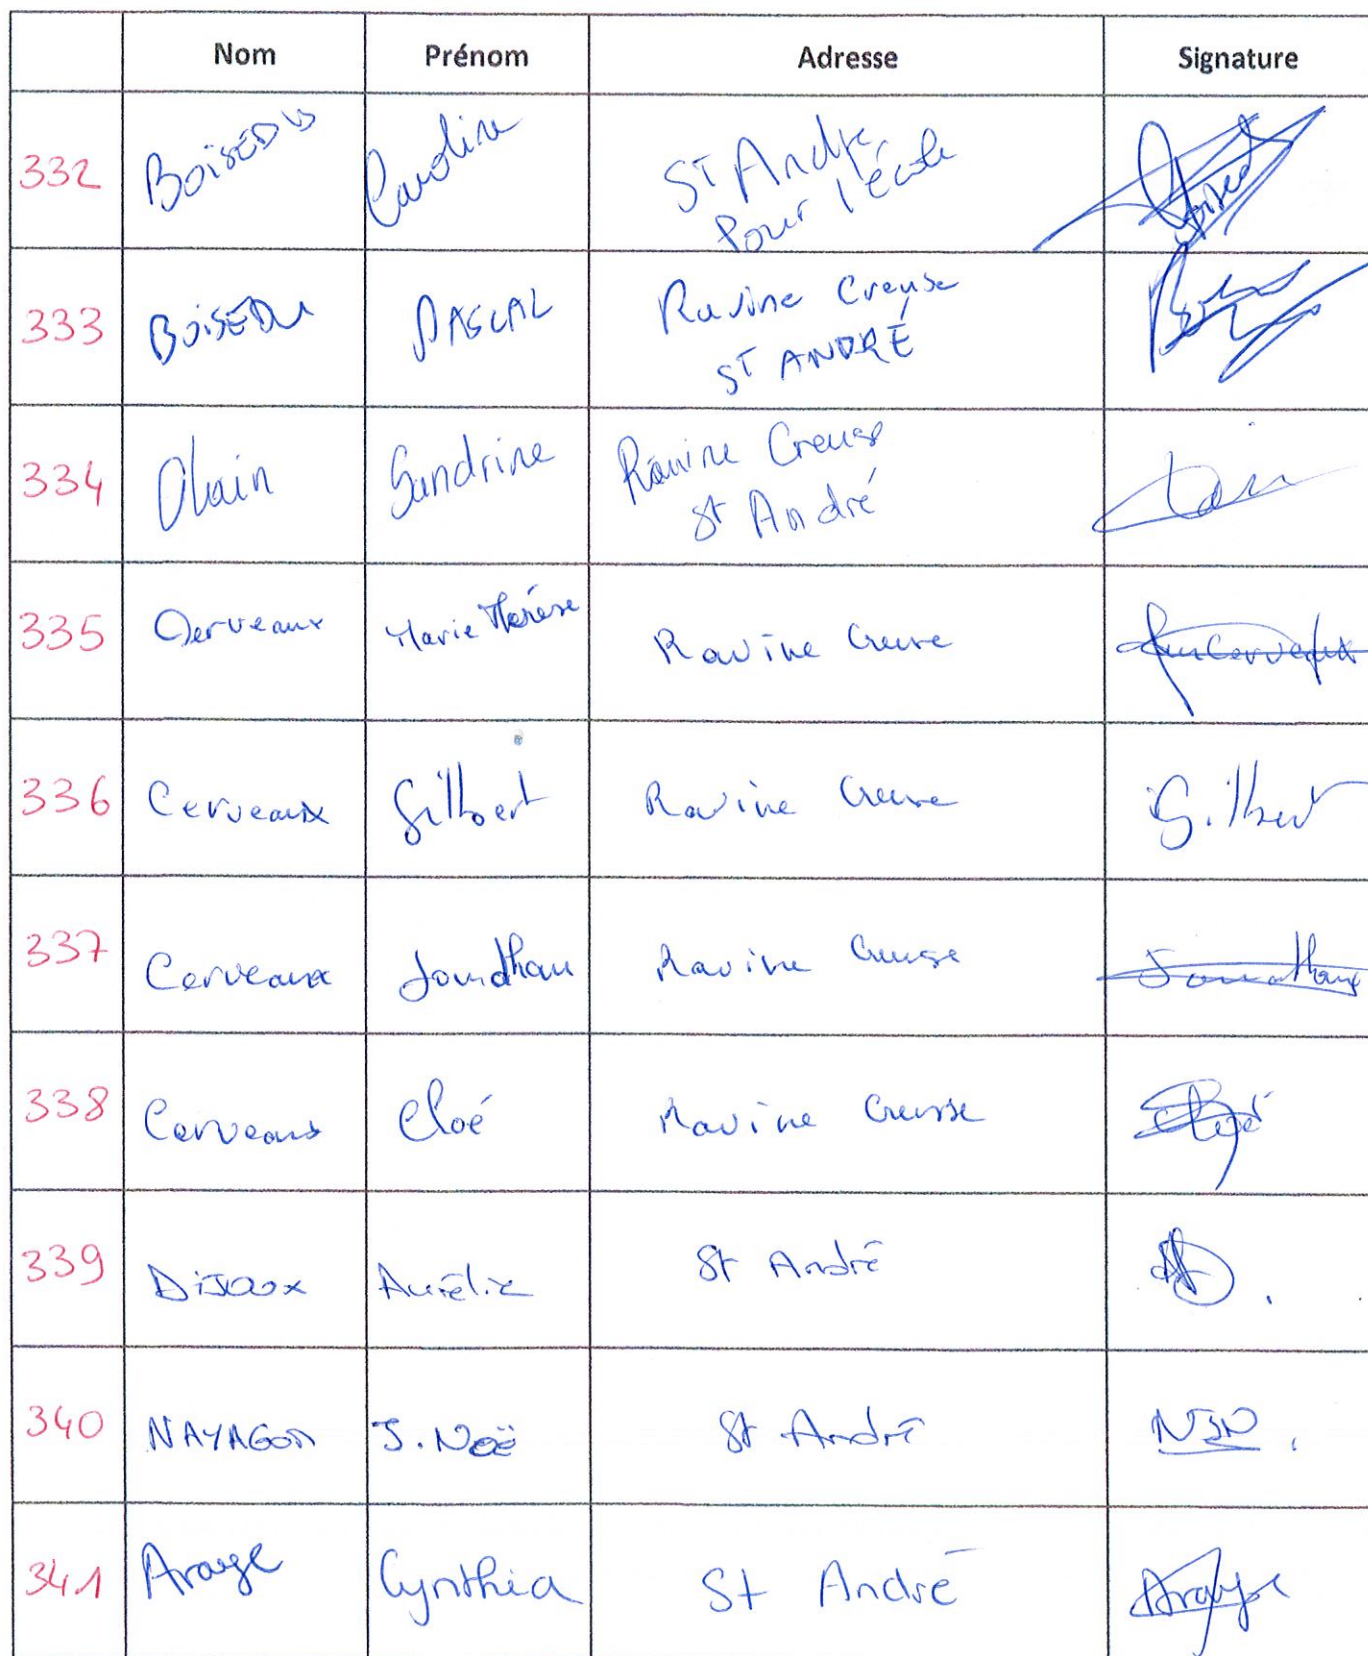 Nom Prénom Adresse Signature
332 BoiSEDU Caroline ST Andre
Pour l'école
333 BoiSEDU PASCAL Ravine Creuse
ST ANDRÉ
334 Olivain Sandrine Ravine Creuse
St André
335 Cerveaux Marie Thérèse Ravine Creuse
336 Cerveaux Gilbert Ravine Creuse Gilbert
337 Cerveaux Jonathan Ravine Creuse Jonathan
338 Cerveaux Cloé Ravine Creusse Cloé
339 DiJOUX Aurélie St André
340 NAYAGOM J. Noë St André NJN.
341 Araye Cynthia St André Araye